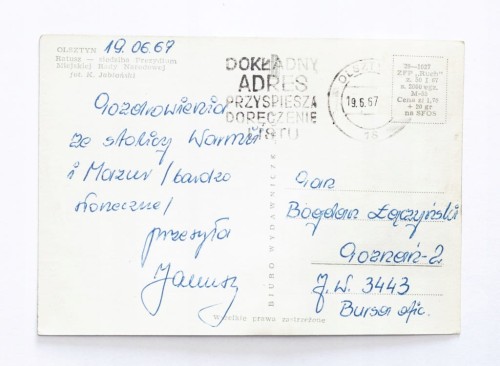 19.06.67
OLSZTYN
Ratusz — siedziba Prezydium
Miejskiej Rady Narodowej
fot. K. Jabłoński
Pozdrowienia
ze stolicy Warmii
i Mazur /bardzo
słoneczne/
przesyła
Janusz
DOKŁADNY
ADRES
PRZYSPIESZA
DORĘCZENIE
LISTU
OLSZTYN
19.6.67
BIURO WYDAWNICZE
ZFP „Ruch"
Cena zł 1,70
+ 20 gr
na SFOS
Pan
Bogdan Łączyński
Poznań-2
J.W. 3443
Bursa ofic.
Wszelkie prawa zastrzeżone